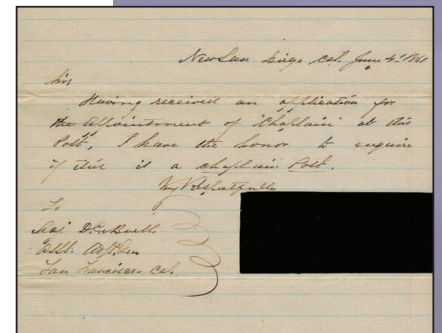 New San Diego, Cal. June 4th
Sir,
Having received an application for
the appointment of "Chaplain" at this
Post, I have the honor to enquire
if this is a chaplain Post.
Very Respectfully
To
Maj. D.
Asst. Adjt. Gen
San Francisco. Cal.